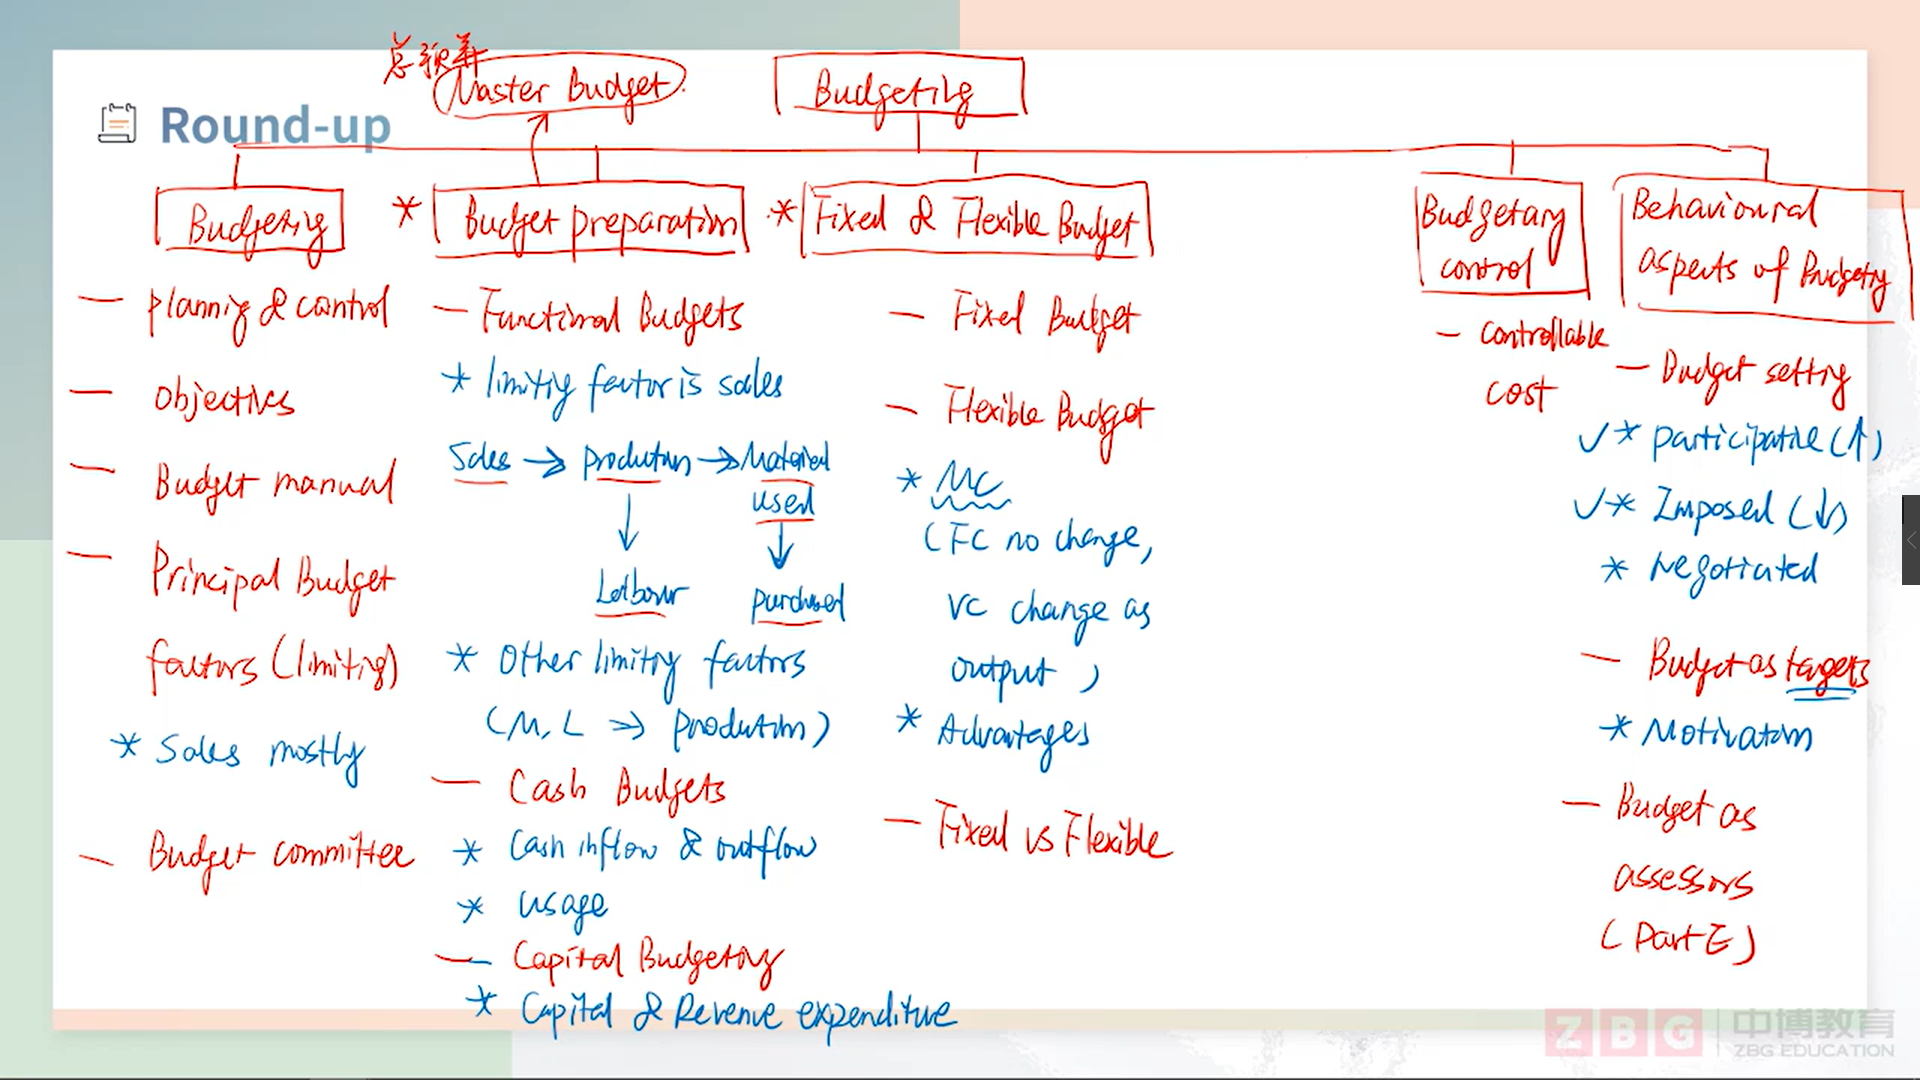 总预算
Master Budget
Budgeting
Round-up
Budgeting
— planning & control
— objectives
— Budget manual
— Principal Budget
factors (limiting)
* Sales mostly
— Budget committee
* Budget preparation
— Functional Budgets
* limiting factor is sales
Sales → production → Material
used
↓ ↓
Labour purchased
* Other limiting factors
(M, L ⇒ production)
— Cash Budgets
* Cash inflow & outflow
* usage
— Capital Budgeting
* Capital & Revenue expenditure
* Fixed & Flexible Budget
— Fixed Budget
— Flexible Budget
* MC
(FC no change,
VC change as
output)
* Advantages
— Fixed vs Flexible
Budgetary
control
— controllable
cost
Behavioural
aspects of Budgeting
— Budget setting
✓ * participative (↑)
✓ * Imposed (↓)
* Negotiated
— Budget as targets
* Motivation
— Budget as
assessors
(Part E)
ZBG 中博教育
ZBG EDUCATION